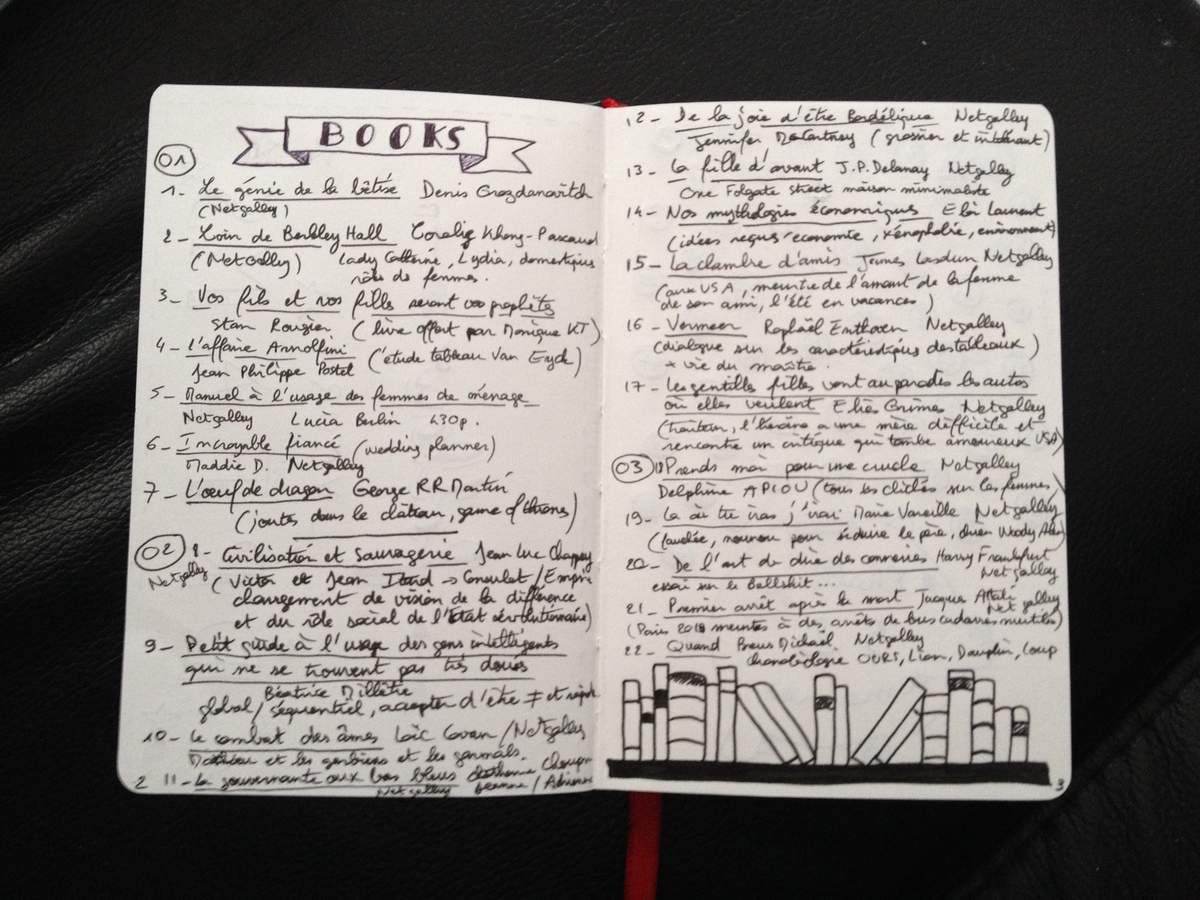 BOOKS
01
1- Le génie de la bêtise Denis Grozdanovitch
(Netgalley)
2- Loin de Berkley Hall Coralie Khong-Pascaud
(Netgalley) Lady Catherine, Lydia, domestiques
rôle de femmes.
3- Vos fils et vos filles seront vos prophètes
Stan Rougier (livre offert par Monique KT)
4- L'affaire Arnolfini (l'étude tableau Van Eyck)
Jean Philippe Postel
5- Manuel à l'usage des femmes de ménage
Netgalley Lucia Berlin 430p.
6- Incroyable fiancé (wedding planner)
Maddie D. Netgalley
7- L'œuf de dragon George RR Martin
(joutes dans le château, game of thrones)
02 8- Civilisation et sauvagerie Jean Luc Chappey
Netgalley (Victor et Jean Itard → Consulat/Empire
changement de vision de la différence
et du rôle social de l'Etat révolutionnaire)
9- Petit guide à l'usage des gens intelligents
qui ne se trouvent pas très doués
Béatrice Millêtre
global/séquentiel, accepter d'être ≠ et
10- Le combat des âmes Loïc Cavan/Netgalley
et les et les
2 11- La gouvernante aux bas bleus
Netgalley
12- De la joie d'être Bordélique Netgalley
Jennifer McCartney (grossier et intolérant)
13- La fille d'avant J.P. Delaney Netgalley
One Folgate Street maison minimaliste
14- Nos mythologies économiques Eloi Laurent
(idées reçues économie, xénophobie, environnement)
15- La chambre d'amis James Lasdun Netgalley
(aux USA, meurtre de l'amant de la femme
de son ami, l'été en vacances)
16- Vermeer Raphaël Enthoven Netgalley
(dialogue sur les caractéristiques des tableaux)
+ vie du maître.
17- Les gentilles filles vont au paradis les autres
où elles veulent Elie Grimes Netgalley
(traiteur, l'héroïne a une mère difficile et
rencontre un critique qui tombe amoureux USA)
03 18 Prends moi pour une cruche Netgalley
Delphine APIOU (tous les clichés sur les femmes)
19- Là où tu iras j'irai Marie Vareille Netgalley
nounou pour séduire le père, chien Woody Allen)
20- De l'art de dire des conneries Harry Frankfurt
essai sur le Bullshit... Netgalley
21- Premier arrêt après la mort Jacques Attali
Netgalley
(Paris 2018 meurtres à des arrêts de bus cadavres mutilés)
22- Quand Breus Michaël Netgalley
chronobiologie OURS, Lion, Dauphin, Loup
3